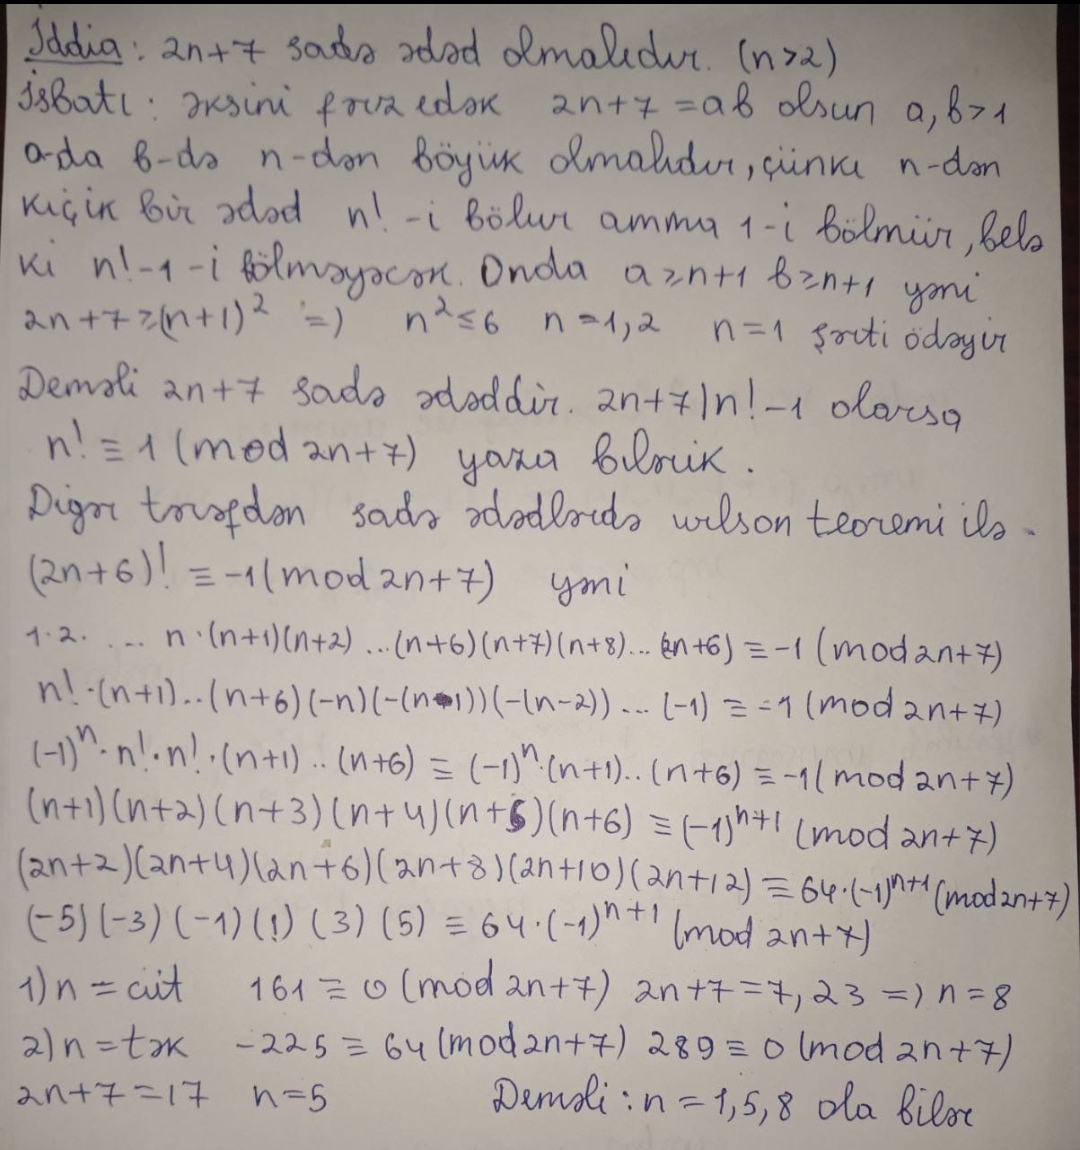 İddia: 2n+7 sadə ədəd olmalıdır. (n>2)
İsbatı: əksini fərz edək 2n+7=ab olsun a,b>1
a-da b-də n-dən böyük olmalıdır, çünki n-dən
kiçik bir ədəd n!-i bölür amma 1-i bölmür, belə
ki n!-1-i bölməyəcək. Onda a≥n+1 b≥n+1 yəni
2n+7≥(n+1)² => n²≤6 n=1,2 n=1 şərti ödəyir
Deməli 2n+7 sadə ədəddir. 2n+7|n!-1 olarsa
n!≡1(mod 2n+7) yaza bilərik.
Digər tərəfdən sadə ədədlərdə wilson teoremi ilə.
(2n+6)!≡-1(mod 2n+7) yəni
1·2·...n·(n+1)(n+2)...(n+6)(n+7)(n+8)...(2n+6)≡-1(mod 2n+7)
n!·(n+1)..(n+6)(-n)(-(n-1))(-(n-2))...(-1)≡-1(mod 2n+7)
(-1)ⁿ·n!·n!·(n+1)..(n+6)≡(-1)ⁿ·(n+1)..(n+6)≡-1(mod 2n+7)
(n+1)(n+2)(n+3)(n+4)(n+5)(n+6)≡(-1)ⁿ⁺¹(mod 2n+7)
(2n+2)(2n+4)(2n+6)(2n+8)(2n+10)(2n+12)≡64·(-1)ⁿ⁺¹(mod 2n+7)
(-5)(-3)(-1)(1)(3)(5)≡64·(-1)ⁿ⁺¹(mod 2n+7)
1)n=cüt 161≡0(mod 2n+7) 2n+7=7,23 => n=8
2)n=tək -225≡64(mod 2n+7) 289≡0(mod 2n+7)
2n+7=17 n=5 Deməli:n=1,5,8 ola bilər